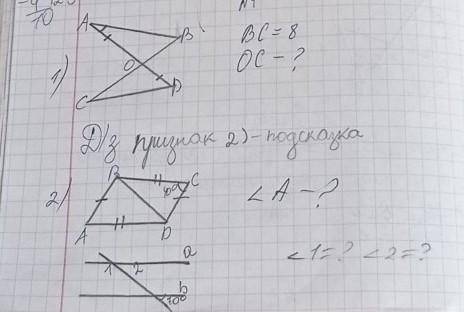 10
A
B
BC = 8
O
OC - ?
1)
D
C
Д/з признак 2) - подсказка
B
C
2)
∠A - ?
A
D
a
1 2
∠1 = ? ∠2 = ?
b